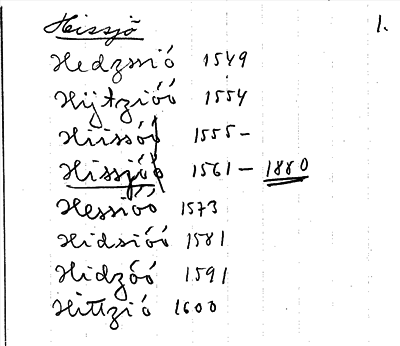 Hissjö 1.
Hedzsió 1549
Hijtzióó 1554
Hiissóó 1555-
Hissjöö 1561 - 1880
Hessióó 1573
Hidsióó 1581
Hidzóó 1591
Hittzió 1600